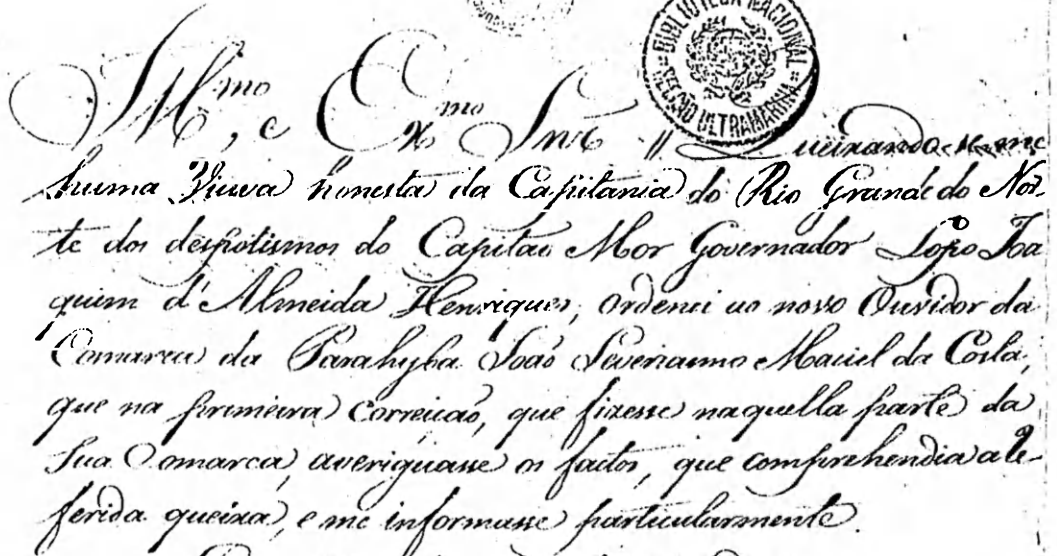 BIBLIOTECA NACIONAL
SECÇÃO ULTRAMARINA
Illmo, e Exmo Snr // Queixando-se-me
huma Viuva honesta da Capitania do Rio Grande do Nor-
te dos despotismos do Capitaõ Mor Governador Lopo Joa
quim d'Almeida Henriques, ordenei ao novo Ouvidor da
Comarca da Parahyba Joaõ Severianno Maciel da Costa,
que na primeira Correiçaõ, que fizesse naquella parte da
Sua Comarca, averiguasse os factos, que comprehendia a re-
ferida queixa, e me informasse particularmente.